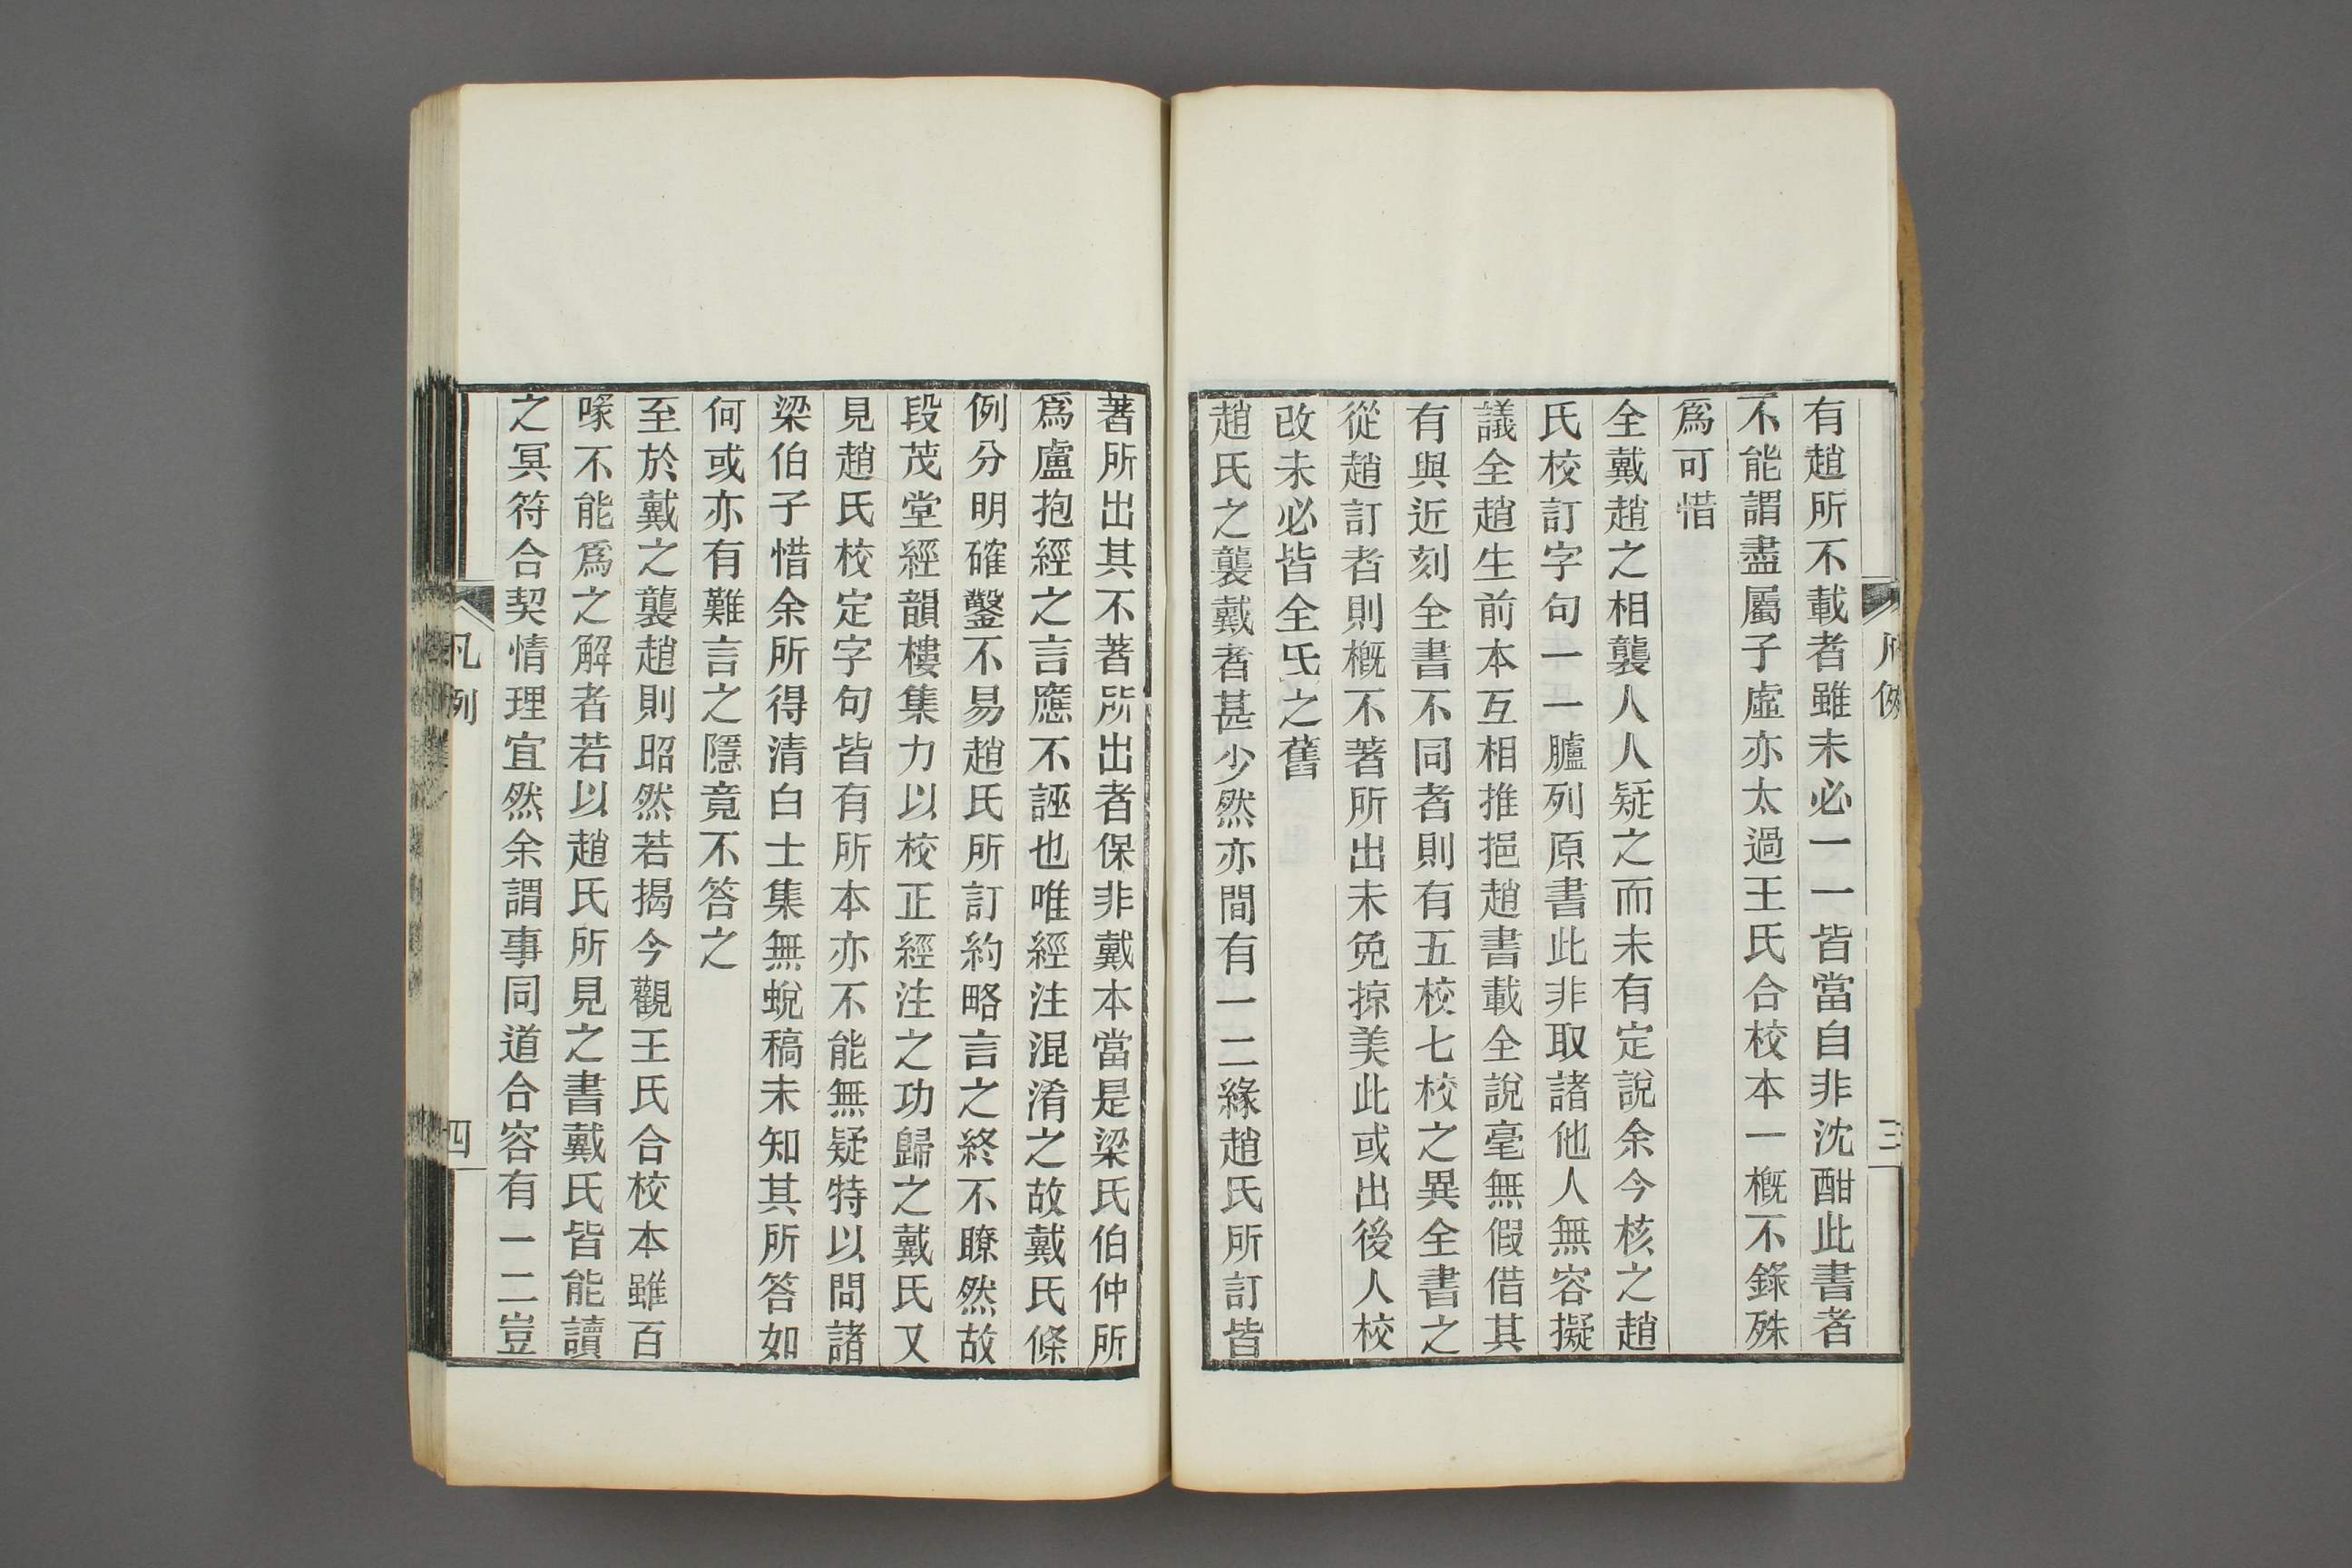 有趙所不載者雖未必一一皆當自非沈酣此書者
不能謂盡屬子虛亦太過王氏合校本一概不錄殊
爲可惜
全戴趙之相襲人人疑之而未有定說余今核之趙
氏校訂字句一一臚列原書此非取諸他人無容擬
議全趙生前本互相推挹趙書載全說毫無假借其
有與近刻全書不同者則有五校七校之異全書之
從趙訂者則概不著所出未免掠美此或出後人校
改未必皆全氏之舊
趙氏之襲戴者甚少然亦間有一二緣趙氏所訂皆
凡例
三
著所出其不著所出者保非戴本當是梁氏伯仲所
爲盧抱經之言應不誣也唯經注混淆之故戴氏條
例分明確鑿不易趙氏所訂約略言之終不瞭然故
段茂堂經韻樓集力以校正經注之功歸之戴氏又
見趙氏校定字句皆有所本亦不能無疑特以問諸
梁伯子惜余所得清白士集無蛻稿未知其所答如
何或亦有難言之隱竟不答之
至於戴之襲趙則昭然若揭今觀王氏合校本雖百
喙不能爲之解者若以趙氏所見之書戴氏皆能讀
之冥符合契情理宜然余謂事同道合容有一二豈
凡例
四